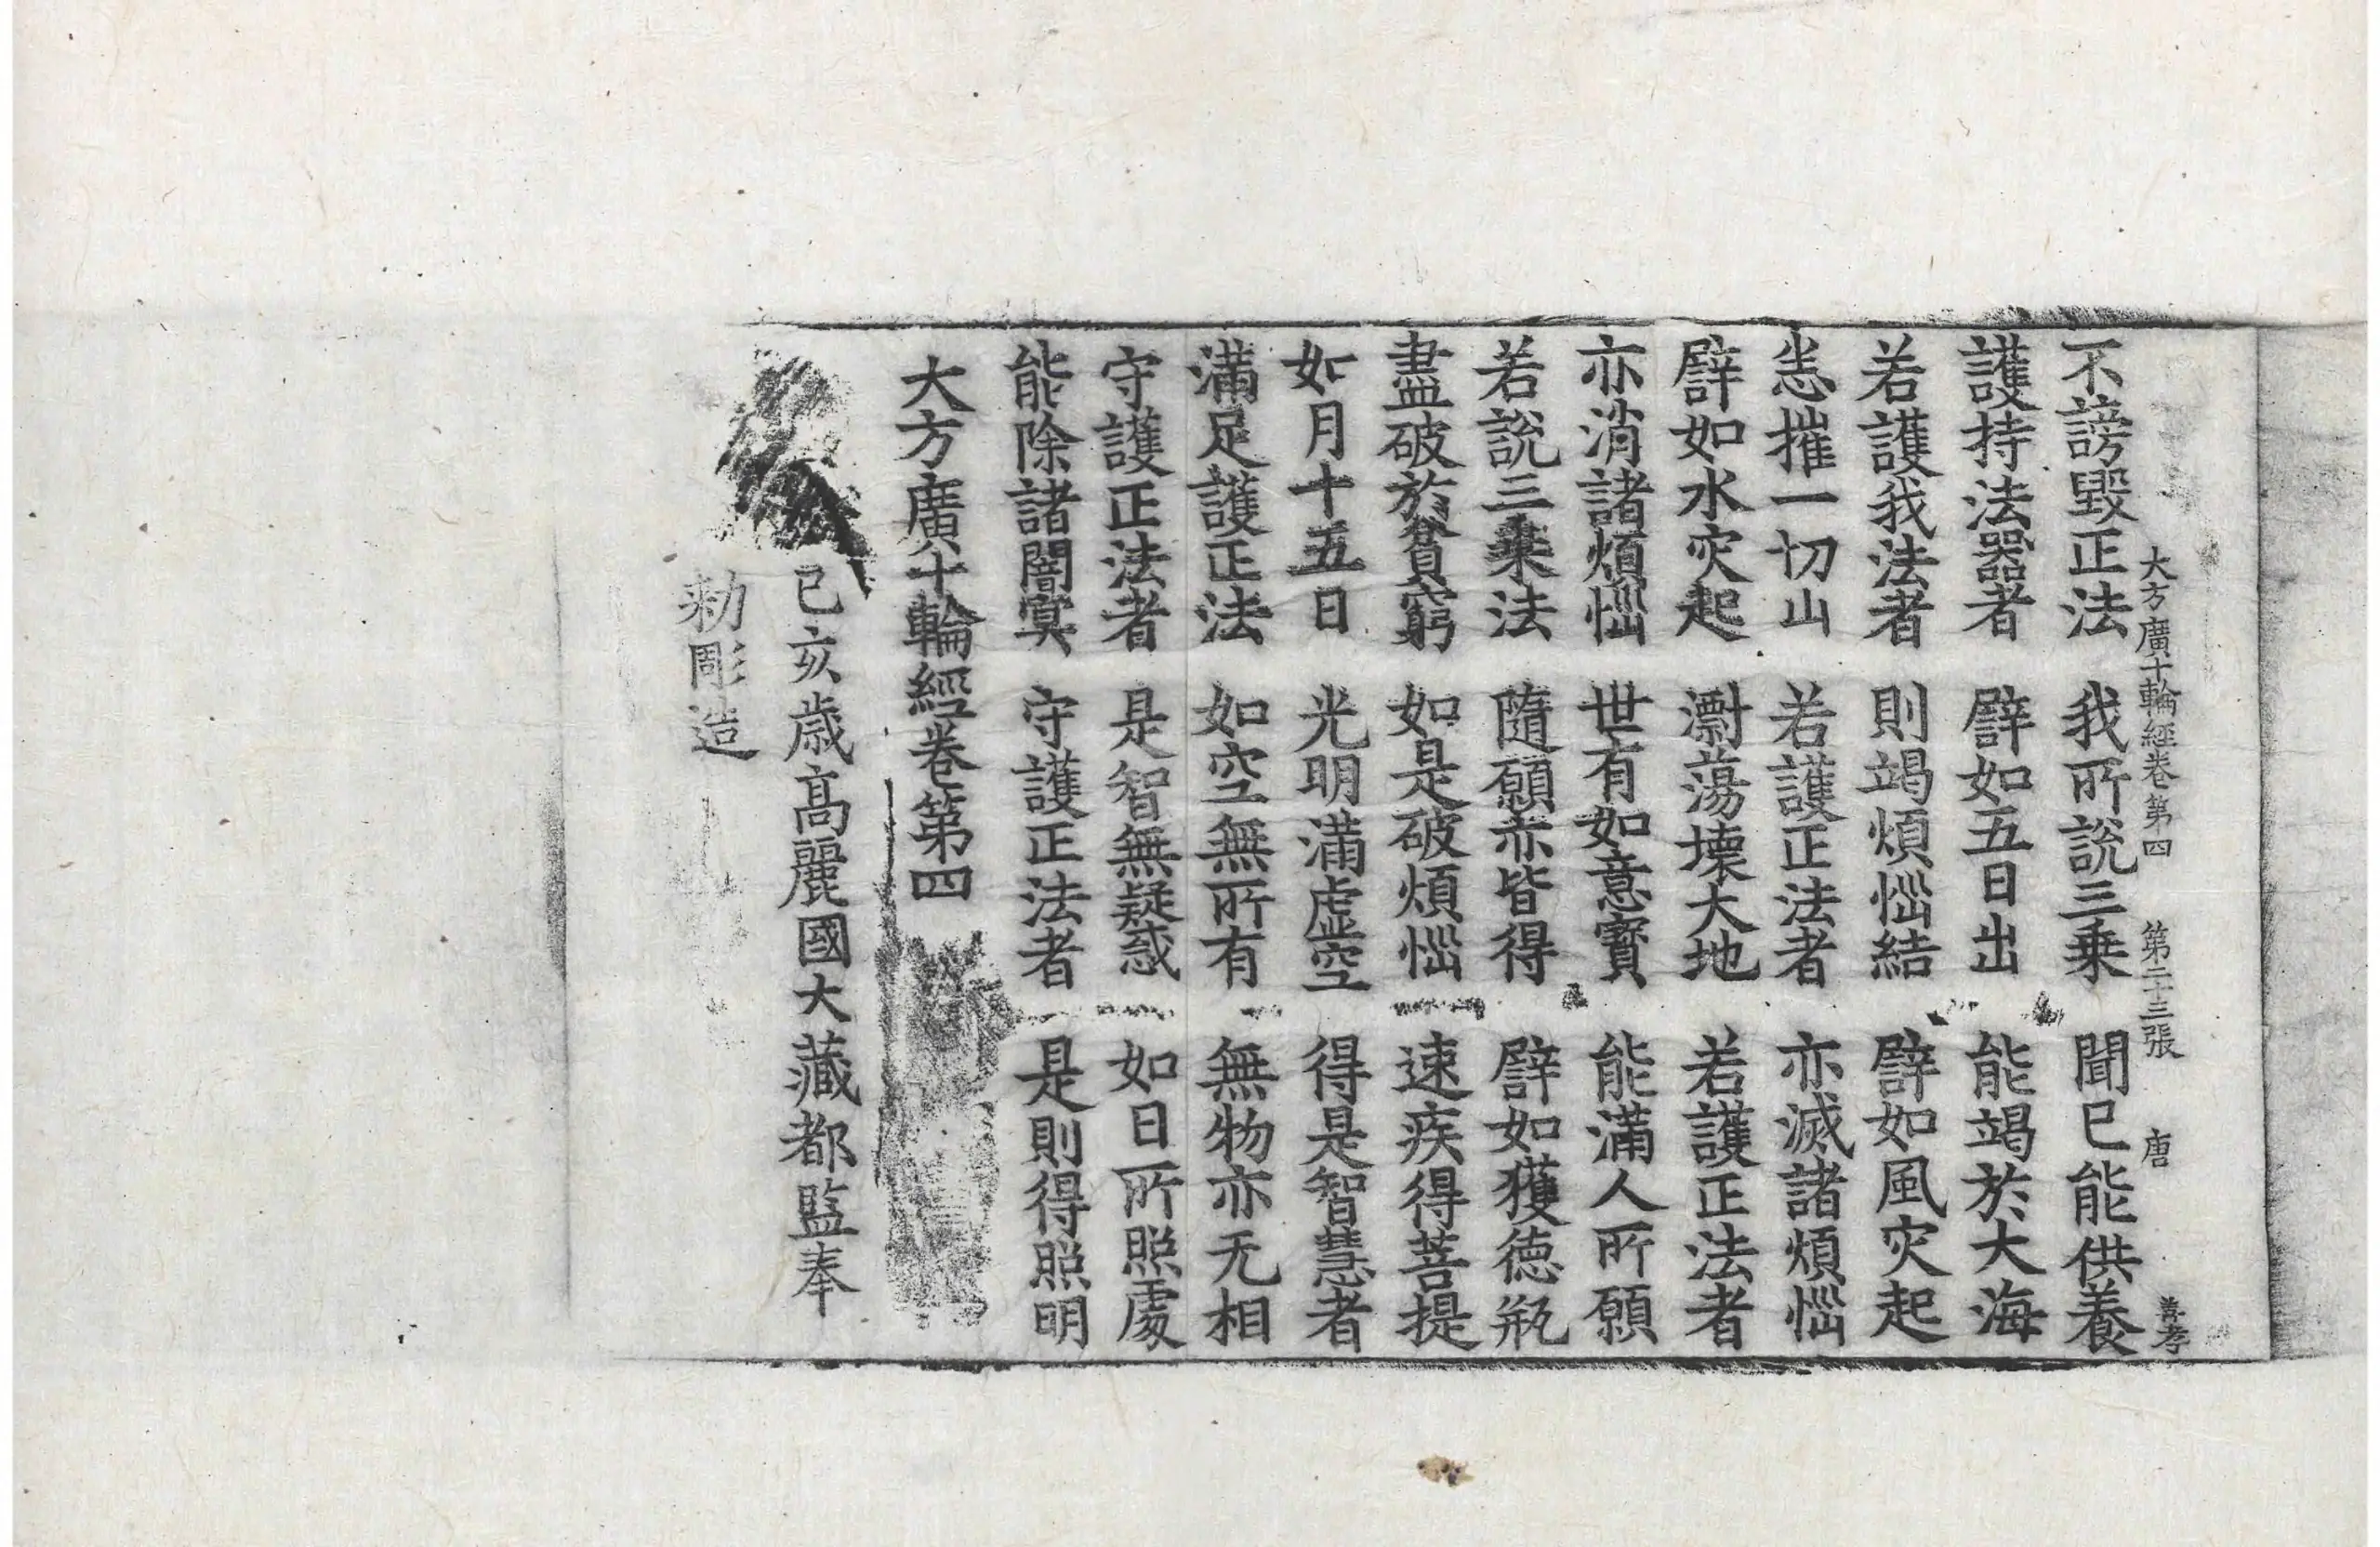 大方廣十輪經卷第四 第二十三張 唐 善孝
不謗毀正法 我所說三乘 聞已能供養
護持法器者 譬如五日出 能竭於大海
若護我法者 則竭煩惱結 譬如風灾起
恙摧一切山 若護正法者 亦滅諸煩惱
譬如水灾起 漂蕩壞大地 若護正法者
亦消諸煩惱 世有如意寶 能滿人所願
若說三乘法 隨願亦皆得 譬如獲德瓶
盡破於貧窮 如是破煩惱 速疾得菩提
如月十五日 光明滿虛空 得是智慧者
滿足護正法 如空無所有 無物亦无相
守護正法者 是智無疑惑 如日所照處
能除諸闇冥 守護正法者 是則得照明
大方廣十輪經卷第四
己亥歲高麗國大藏都監奉
勑彫造